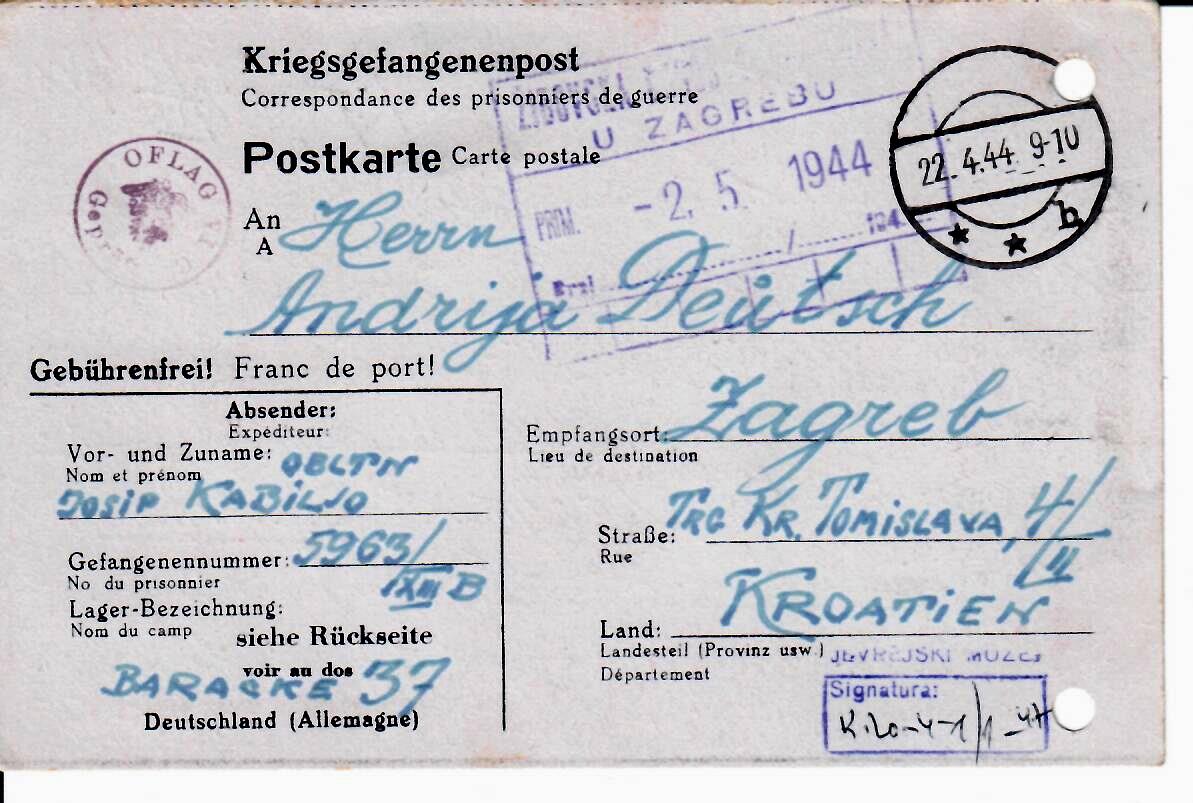 Kriegsgefangenenpost
Correspondance des prisonniers de guerre
Postkarte Carte postale
U ZAGREBU
PRIM. - 2. 5. 1944
22. 4. 44 9-10
b
OFLAG
An Herrn
A
Andrija Deutsch
Gebührenfrei! Franc de port!
Absender:
Expéditeur:
Vor- und Zuname: OBLTN
Nom et prénom
JOSIP KABILJO
Gefangenennummer: 5963/
No du prisonnier
IXIII B
Lager-Bezeichnung:
Nom du camp
siehe Rückseite
voir au dos
BARACKE 37
Deutschland (Allemagne)
Empfangsort: Zagreb
Lieu de destination
Straße: TRG KR. TOMISLAVA, 4/
Rue
III
KROATIEN
Land:
Landesteil (Provinz usw.)
Département
JEVREJSKI MUZEJ
Signatura: